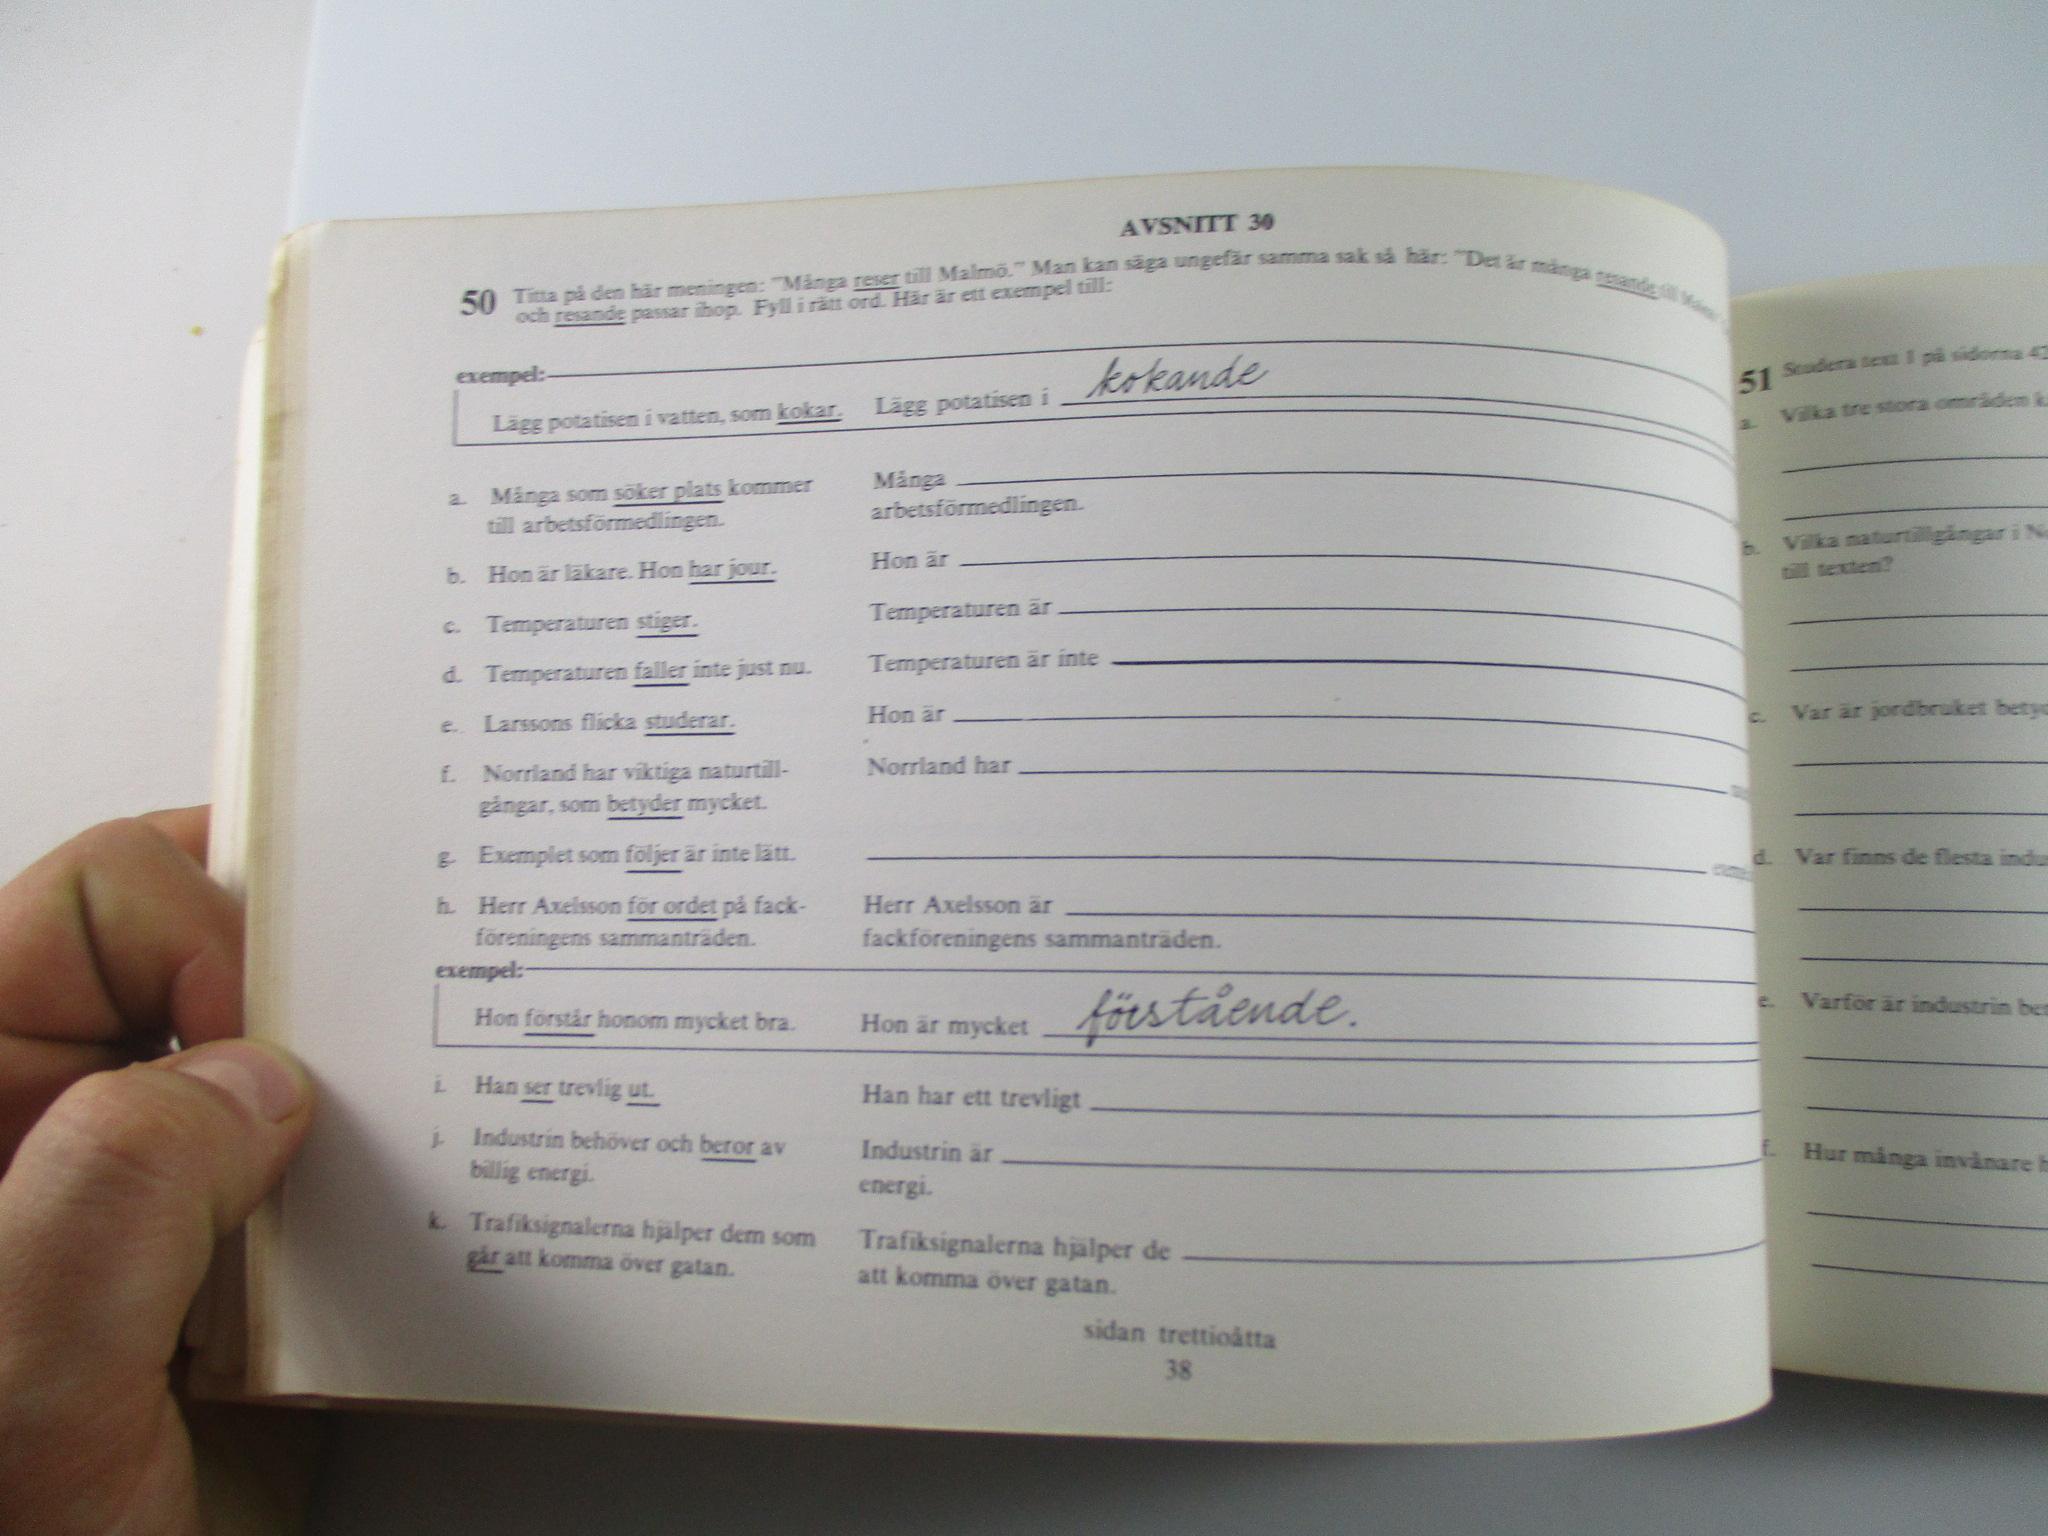 AVSNITT 30
50 Titta på den här meningen: "Många reser till Malmö." Man kan säga ungefär samma sak så här: "Det är många resande till
och resande passar ihop. Fyll i rätt ord. Här är ett exempel till:
exempel:
Lägg potatisen i vatten, som kokar. Lägg potatisen i kokande
a. Många som söker plats kommer Många
till arbetsförmedlingen. arbetsförmedlingen.
b. Hon är läkare. Hon har jour. Hon är
c. Temperaturen stiger. Temperaturen är
d. Temperaturen faller inte just nu. Temperaturen är inte
e. Larssons flicka studerar. Hon är
f. Norrland har viktiga naturtill- Norrland har
gångar, som betyder mycket.
g. Exemplet som följer är inte lätt.
h. Herr Axelsson för ordet på fack- Herr Axelsson är
föreningens sammanträden. fackföreningens sammanträden.
exempel:
Hon förstår honom mycket bra. Hon är mycket förstående.
i. Han ser trevlig ut. Han har ett trevligt
j. Industrin behöver och beror av Industrin är
billig energi. energi.
k. Trafiksignalerna hjälper dem som Trafiksignalerna hjälper de
går att komma över gatan. att komma över gatan.
sidan trettioåtta
38
51 Studera text 1 på sidorna
a. Vilka tre stora områden
b. Vilka naturtillgångar i
till texten?
c. Var är jordbruket
d. Var finns de flesta
e. Varför är industrin
f. Hur många invånare